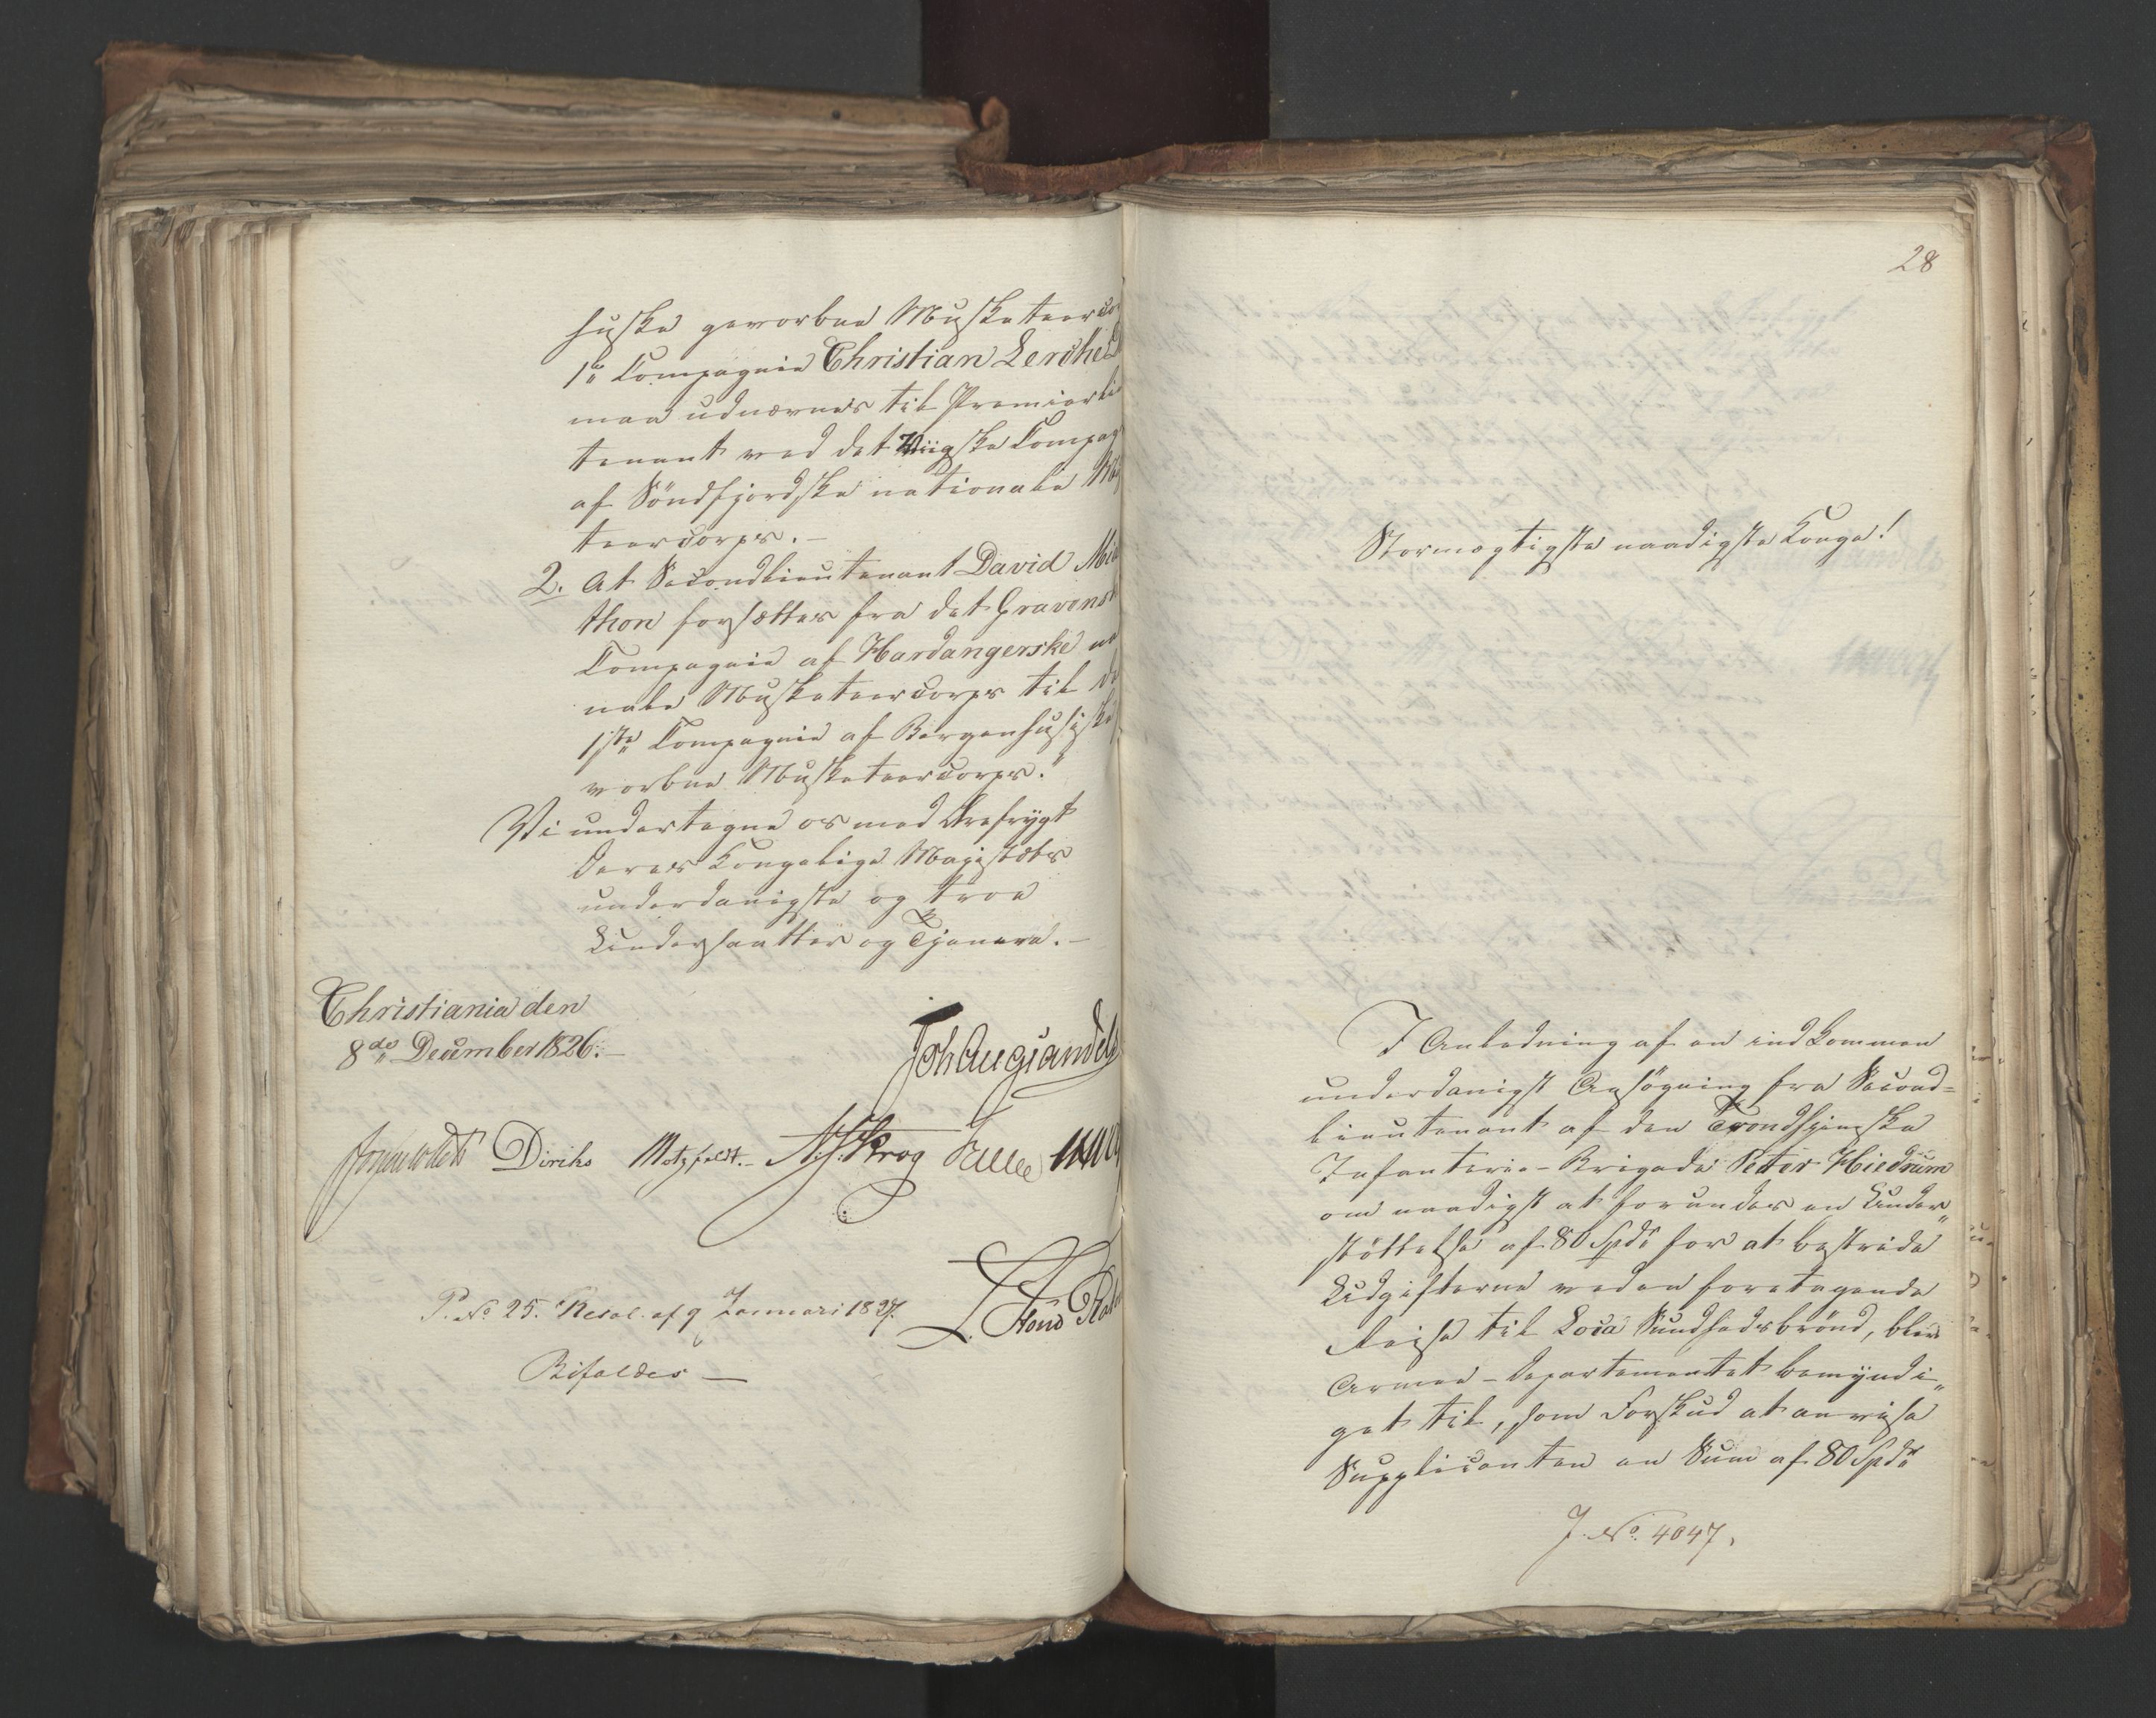 huske gevorbne Musketeerco
1ste Compagnie Christian Lerche D
maa udnævnes til Premierlie
tenant ved det Viigske Compag
af Söndfjordske nationale Mus
teercorps. –
2. At Secondlieutenant David Mil
thon forsættes fra det Gravensk
Compagnie af Hardangerske na
nale Musketeercorps til de
1ste Compagnie af Bergenhusiske
vorbne Musketeercorps."
Vi undertegne os med Ærefrygt
Deres Kongelige Majestæts
underdanigste og troe
Undersaatter og Tjenere. –
Christiania den
8de December 1826. –
Joh Aug Sandels
Diriks Motzfeldt. – N. J. Krog
P. No 25. Resol. af 9 Januari 1827.
Bifaldes —
28
Stormægtigste naadigste Konge!
I Anledning af en indkommen
underdanigst Ansögning fra Second=
lieutenant af den Trondhjemske
Infanterie-Brigade Peter Hiedrum
om naadigst at forundes en Under„
støttelse af 80 Spdr for at bestride
Udgifterne ved en foretagende
Reise til Loca Sundhedsbrönd, blev
Armee-Departementet bemyndi„
get til, som Forskud at anvise
Supplicanten en Sum af 80 Spdr
J. No. 4047.